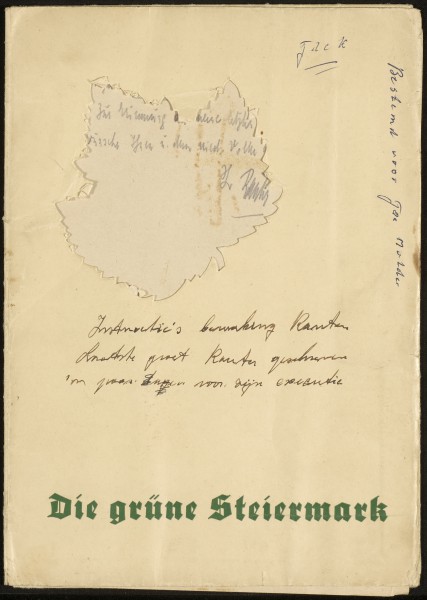 Jack
Bestemd voor Jan Mulder
Zur Erinnerung
Ihr Rauter
Instructie's bewaking Rauter
Laatste groet Rauter geschreven
'n paar dagen voor zijn executie
Die grüne Steiermark